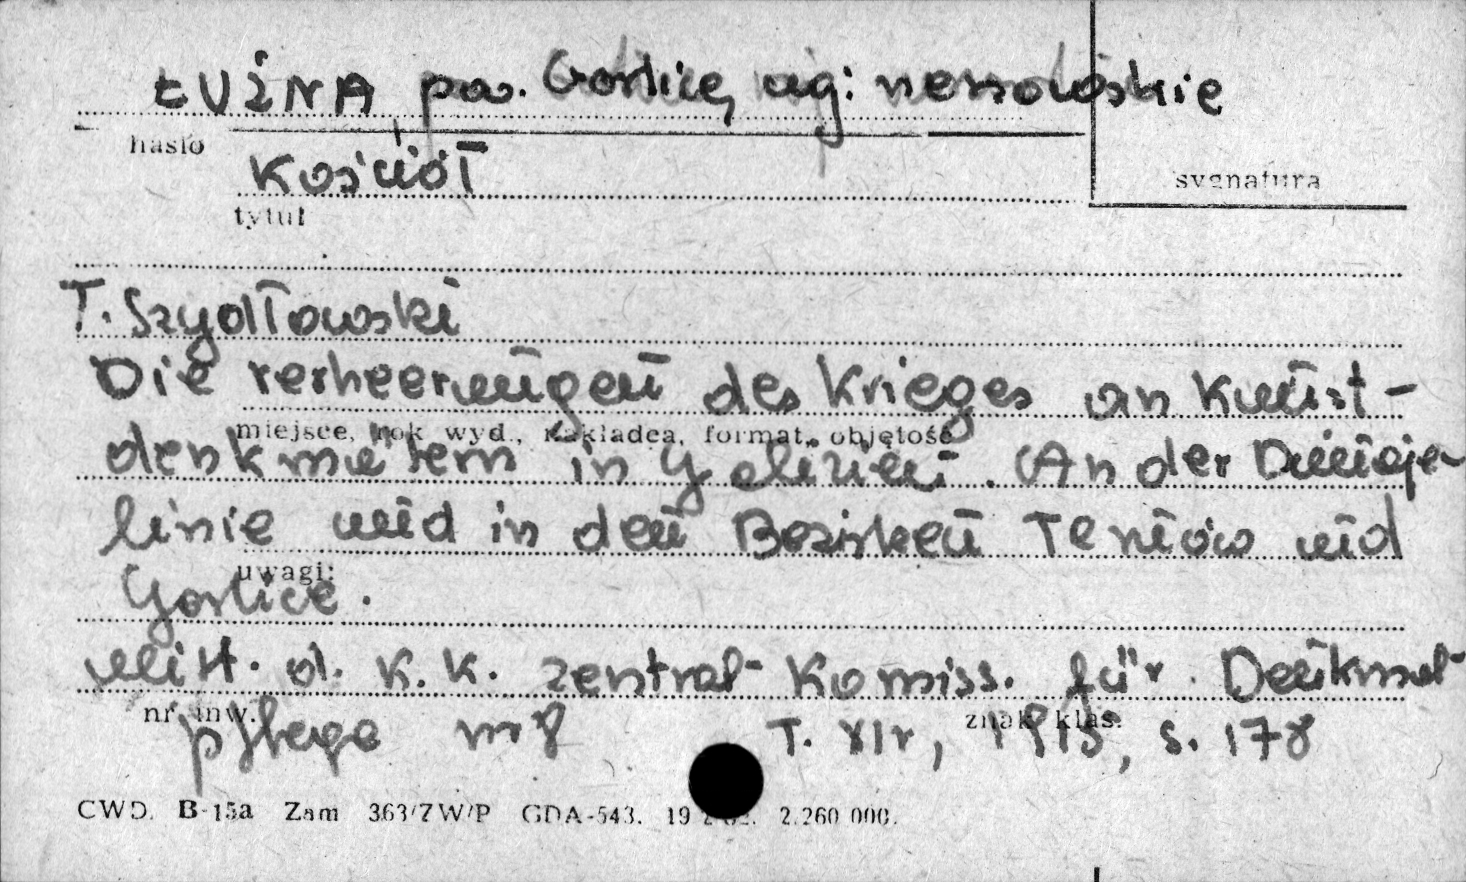 ŁUŻNA pow. Gorlice, woj: nowosądeckie
hasło
Kościół
sygnatura
tytuł
T. Szydłowski
Die Verheerungen des Krieges an Kunst-
miejsce, rok wyd., nakładca, format, objętość
denkmälern in Galizien. An der Dunajec
linie und in den Bezirken Tarnów und
uwagi:
Gorlice.
Mitt. d. K. K. Zentral-Komiss. für Denkmal-
nr inw. znak klas.
pflege nr 8 T. XIV, 1915, s. 178
CWD. B-15a Zam 363/7W/P GDA-543. 19 2.260 000.